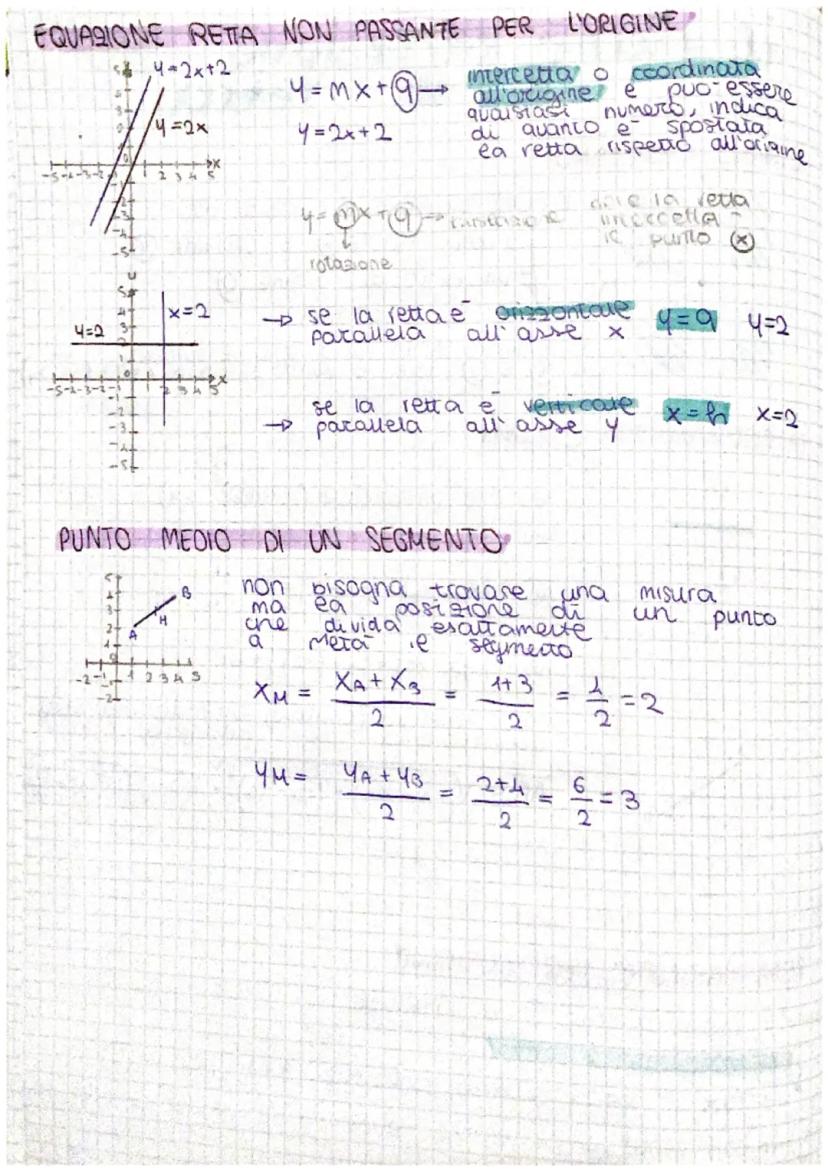 EQUAZIONE RETTA NON PASSANTE PER L'ORIGINE
y=2x+2
y=2x
y=mx+q → intercetta o coordinata
all'origine e può essere
qualsiasi numero, indica
y=2x+2
di quanto è spostata
la retta rispetto all'origine
y=mx+q → dove la retta
intercetta
il punto (x)
rotazione
x=2
y=2
→ se la retta è orizzontale y=q y=2
parallela all'asse x
→ se la retta è verticale x=h x=2
parallela all'asse y
PUNTO MEDIO DI UN SEGMENTO
A
M
B
non bisogna trovare una misura
ma la posizione di un punto
che divida esattamente
a metà il segmento
xM = xA + xB / 2 = 1+3 / 2 = 4/2 = 2
yM = yA + yB / 2 = 2+4 / 2 = 6/2 = 3